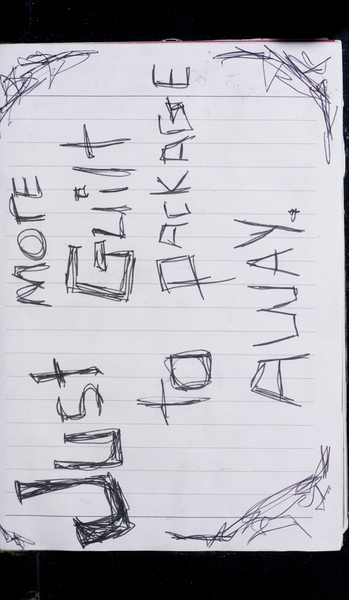 Just more
Guilt
to PACKAGE
AWAY.